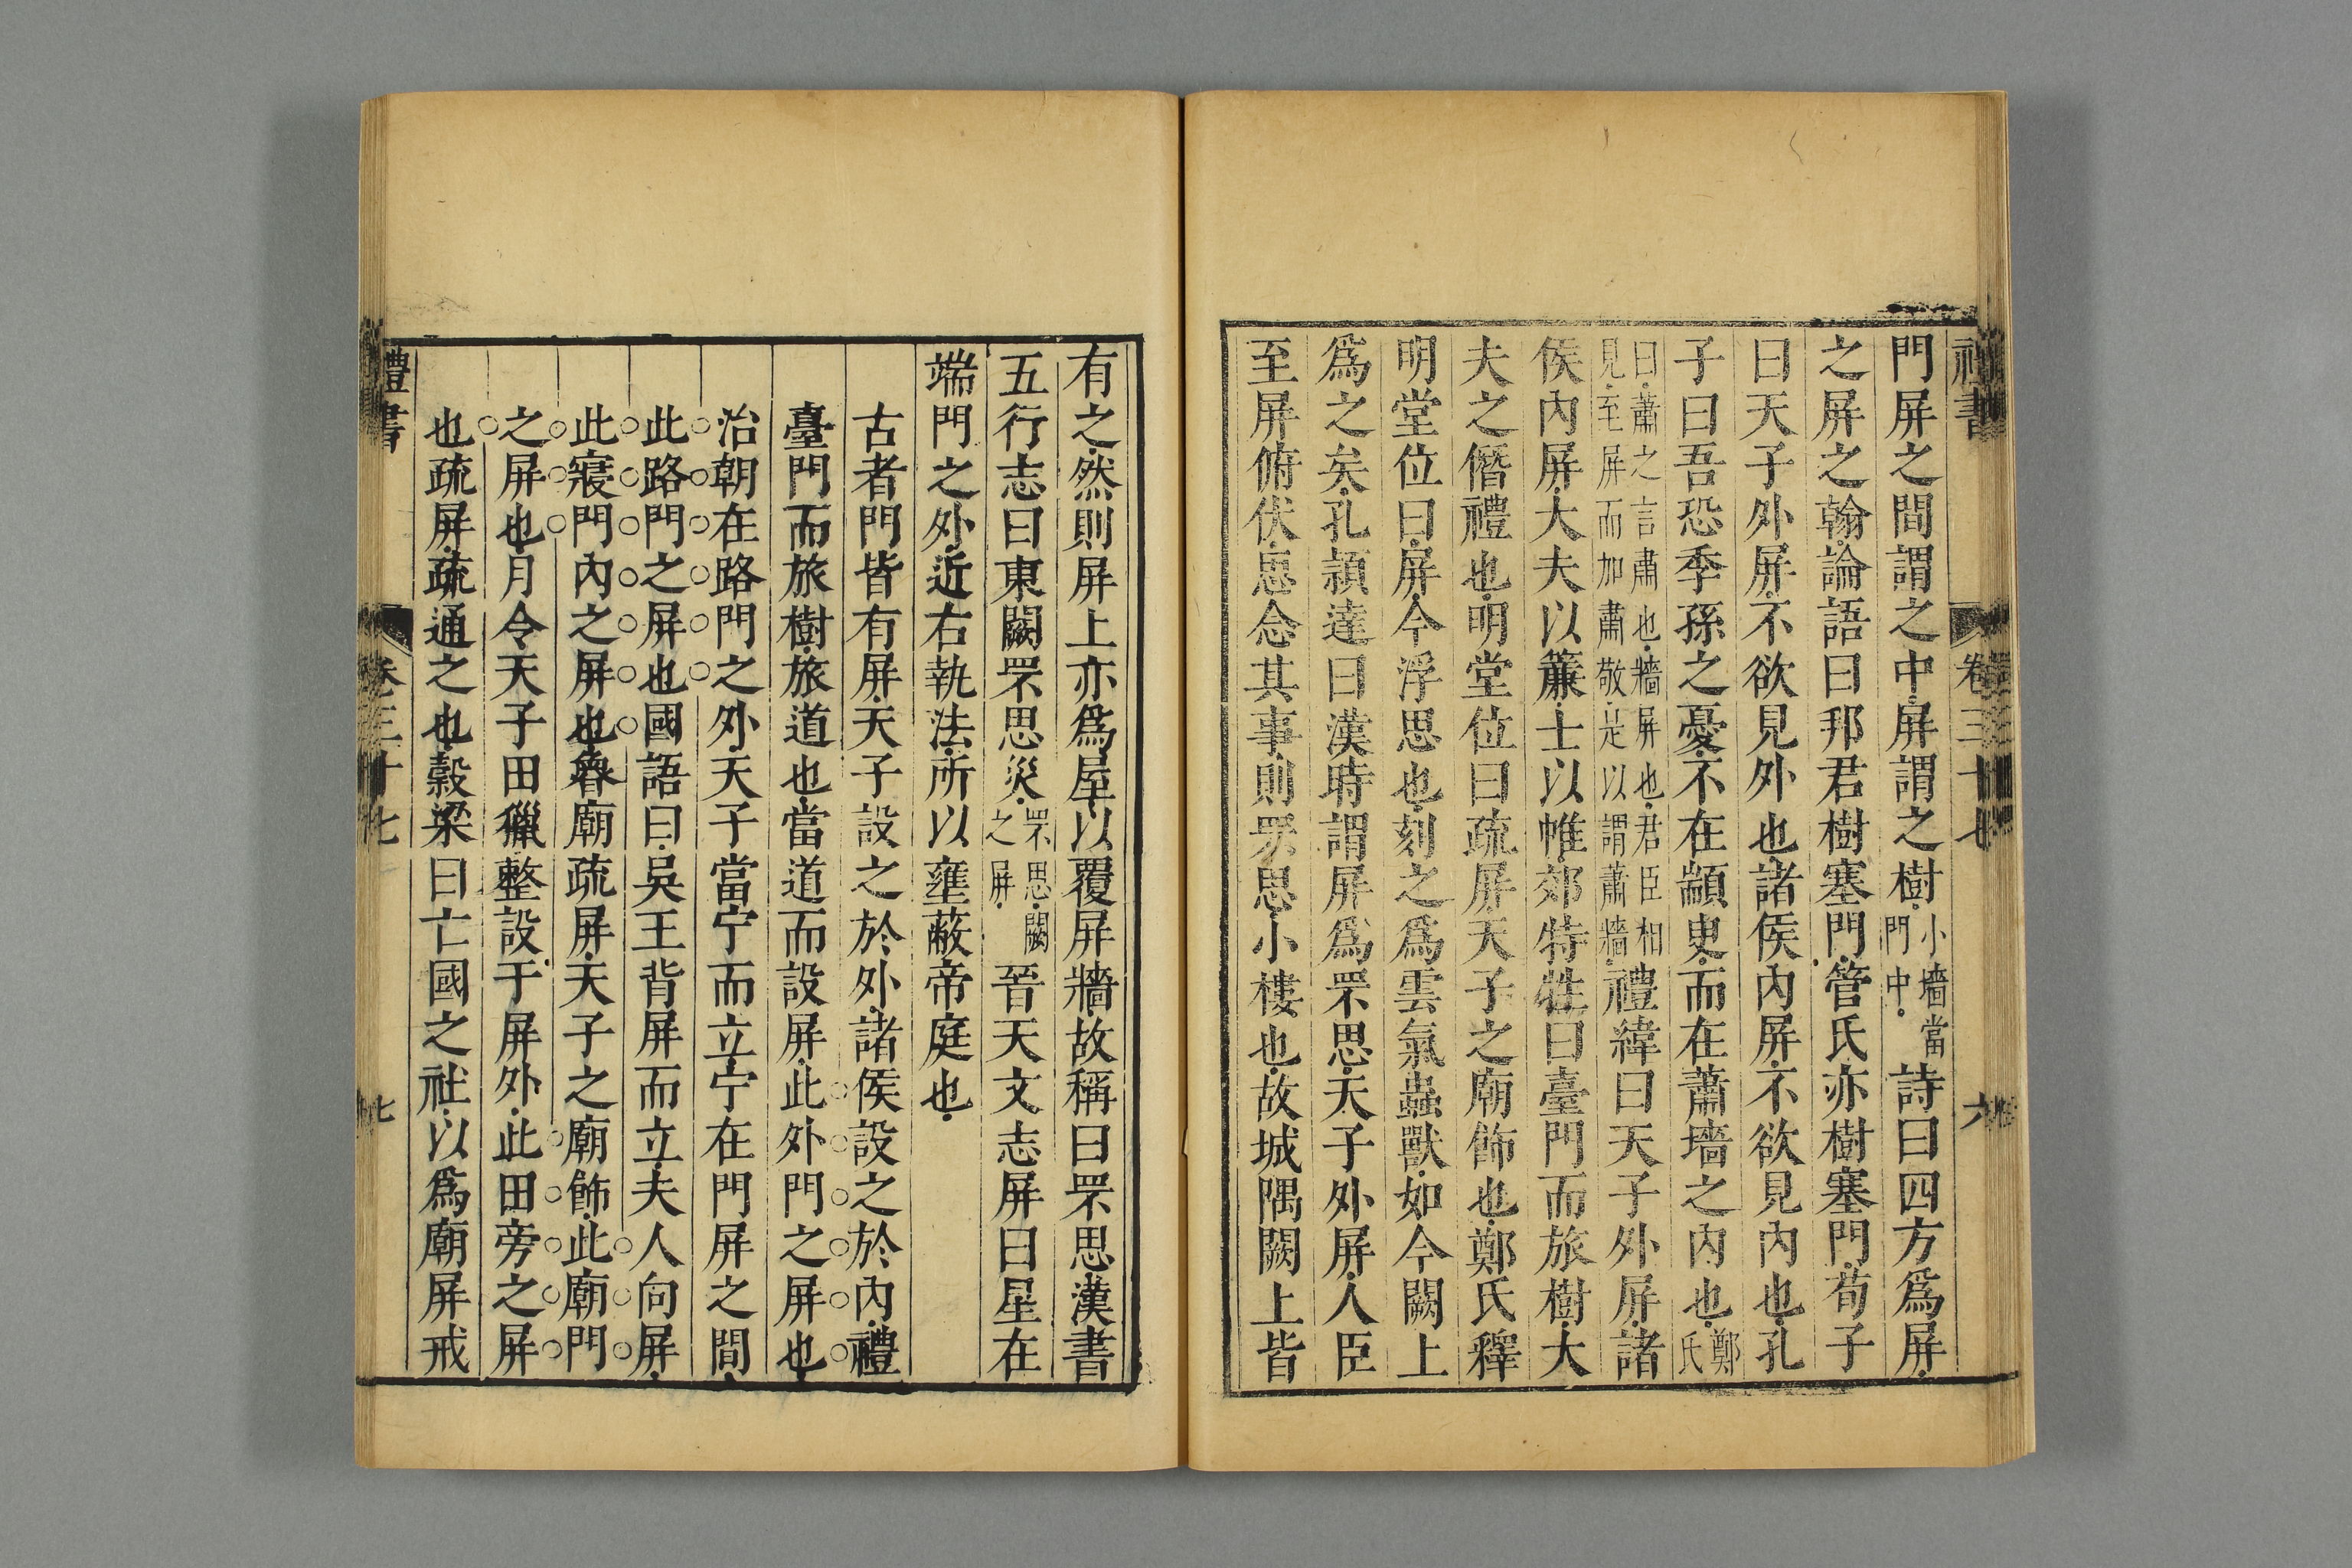 禮書 卷三十七 六
門屏之間謂之中屏謂之樹小墻當門中詩曰四方爲屏
之屏之翰論語曰邦君樹塞門管氏亦樹塞門荀子
曰天子外屏不欲見外也諸侯內屏不欲見內也孔
子曰吾恐季孫之憂不在顓臾而在蕭墻之內也鄭氏
曰蕭之言肅也牆屏也君臣相見至屏而加肅敬是以謂蕭牆禮緯曰天子外屏諸
侯內屏大夫以簾士以帷郊特牲曰臺門而旅樹大
夫之僭禮也明堂位曰疏屏天子之廟飾也鄭氏釋
明堂位曰屏今浮思也刻之爲雲氣蟲獸如今闕上
爲之矣孔頴達曰漢時謂屏爲罘思天子外屏人臣
至屏俯伏思念其事則罘思小樓也故城隅闕上皆
有之然則屏上亦爲屋以覆屏牆故稱曰罘思漢書
五行志曰東闕罘思災罘思闕之屏晉天文志屏曰星在
端門之外近右執法所以壅蔽帝庭也
古者門皆有屏天子設之於外諸侯設之於內禮
臺門而旅樹旅道也當道而設屏此外門之屏也
治朝在路門之外天子當宁而立宁在門屏之間
此路門之屏也國語曰吳王背屏而立夫人向屏
此寢門內之屏也魯廟疏屏天子之廟飾此廟門
之屏也月令天子田獵整設于屏外此田旁之屏
也疏屏疏通之也榖梁曰亡國之社以爲廟屏戒
禮書 卷三十七 七